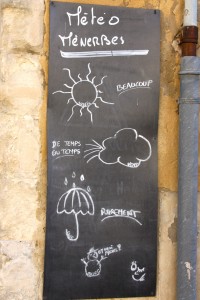 Météo
Ménerbes
BEAUCOUP
DE TEMPS
EN TEMPS
RAREMENT